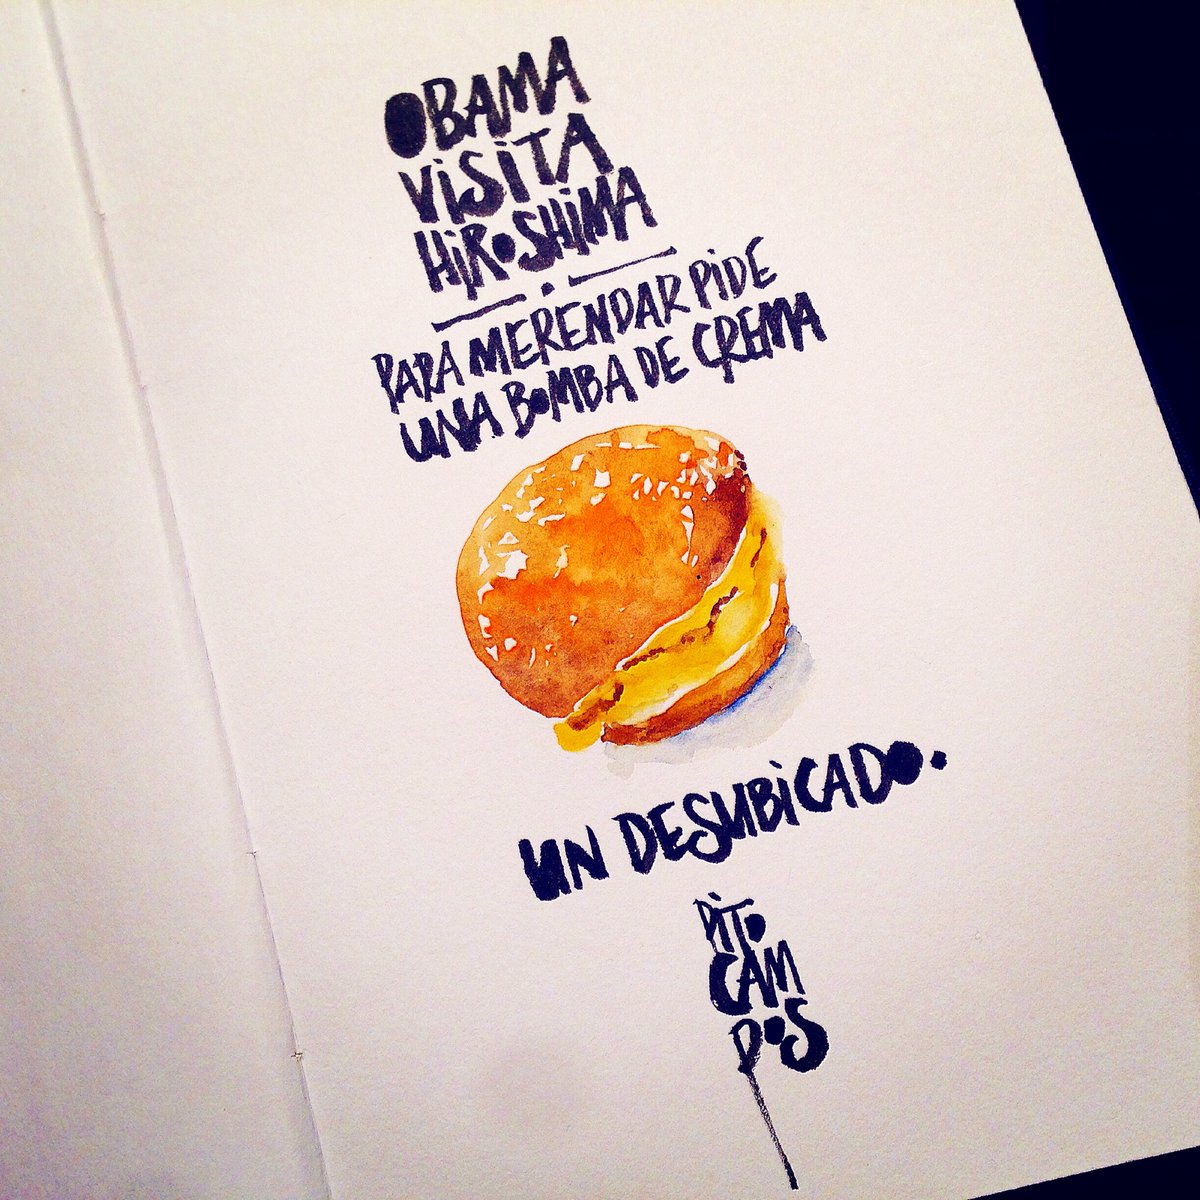 OBAMA
VISITA
HIROSHIMA
PARA MERENDAR PIDE
UNA BOMBA DE CREMA
UN DESUBICADO.
PITO
CAM
POS